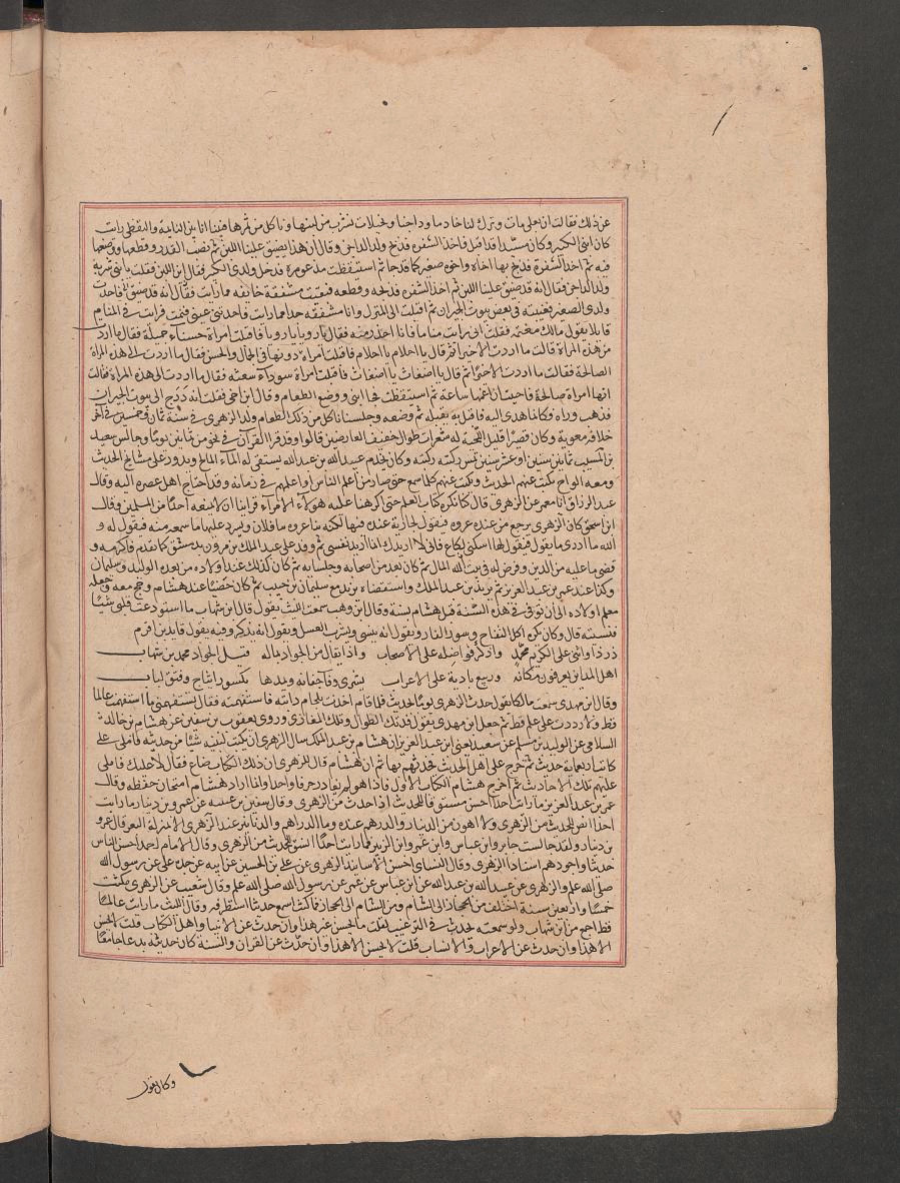 عن ذلك فقالت ان بعلي مات وترك لنا خادما وداجنا ونخيلات نشرب من لبنها وناكل من ثمرها فبينا انا بين النائمة واليقظى رايت
كان ابني الكبير وكان مشتدا قد اقبل فاخذ الشفرة فذبح ولد الداجن وقال ان هذا يضيق علينا اللبن ثم نصب القدر وقطعها ووضعها
فيه ثم اخذ الشفرة فذبح بها اخاه واخوه صغير كما قد جا ثم استيقظت مذعورة فدخل ولدي الكبير فقال اين اللبن فقلت يا بني شربه
ولد الداجن فقال انه قد ضيق علينا اللبن ثم اخذ الشفره فذبحه وقطعه فبقيت مشفقة خايفه مما رايت فقال انه قد ضيق فاخذت
ولدي الصغير فغيبته في بعض بيوت الجيران ثم اقبلت الى المنزل وانا مشفقه جدا مما رايت فاخذتني عيني فنمت فرايت في المنام
قايلا يقول مالك مغتمه فقلت اني رايت مناما فانا احذر منه فقال يا رويا يا رويا فاقبلت امراة حسناء جميلة فقال ما اردت
من هذه المراة قالت ما اردت الا خيرا ثم قال يا احلام يا احلام فاقبلت امراة دونها في الجمال والحسن فقال ما اردت الى هذه المراة
الصالحة فقالت ما اردت الا خيرا ثم قال يا اضغاث يا اضغاث فاقبلت امراة سوداء شعثه فقال ما اردت الى هذه المراة فقالت
انها امراة صالحة فاحببت ان اغمها ساعة ثم استيقظت فجا ابني ووضع الطعام وقال اين اخي فقلت انه درج الى بيوت الجيران
فذهب وراه فكانما هدي اليه فاقبل به يقبله ثم وضعه وجلسنا ناكل من ذلك الطعام ولد الزهري في سنة ثمان وخمسين في آخر
خلافة معوية وكان قصيرا قليل اللحية له شعرات طوال خفيف العارضين قالوا وقد قرا القرآن في نحو من ثمانين يوما وجالس سعيد
بن المسيب ثمانين سنين او عشر سنين تمس ركبته ركبته وكان يخدم عبيد الله بن عبد الله يستقي له الماء المالح ويدور على مشايخ الحديث
ومعه الواح يكتب عنهم الحديث ويكتب عنهم كلما سمع حتى صار من اعلم الناس او اعلمهم في زمانه وقد احتاج اهل عصره اليه وقال
عبد الرزاق انا معمر عن الزهري قال كنا نكره كتاب العلم حتى اكرهنا عليه هولاء الامراء فراينا ان لا نمنعه احدا من المسلمين وقال
ابن اسحق كان الزهري يرجع من عند عروه فيقول لجارية عنده فيها لكنه ثنا عروه ثنا فلان ويسرد عليها ما سمعه منه فيقول له و
الله ما ادري ما يقول فيقول لها اسكتي لكاع فاني لا اريدك انما اريد نفسي ثم وفد على عبد الملك بن مرون بدمشق كما تقدم فاكرمه و
قضى ما عليه من الدين وفرض له في بيت الله المال ثم كان بعد من اصحابه وجلسايه ثم كان كذلك عند اولاده من بعده الوليد وسليمان
وكذا عند عمر بن عبد العزيز ثم يزيد بن عبد الملك واستقضاه يزيد مع سليمان بن حبيب ثم كان حضيا عند هشام وحج معه وجعله
معلم اولاده الى ان توفي في هذه السنة قبل هشام بسنة وقال ابن وهب سمعت الليث يقول قال ابن شهاب ما استودعت قلبي شيئا
فنسيته قال وكان يكره اكل التفاح وسور الفار ويقول انه ينسي ويشرب العسل ويقول انه يذكر وفيه يقول فايد بن اقرم
ذر ذا واثني على الكريم محمد   واذكر فواضله على الاصحاب   واذا يقال من الجواد بماله   قيل الجواد محمد بن شهاب
اهل المداين يعرفون مكانه   وربيع بادية على الاعراب   يشري وفا جفانه ويمدها   بكسور انتاج وفتق لباب
وقال ابن مهدي سمعت مالكا يقول حدث الزهري يوما بحديث فلما قام اخذت بلجام دابته فاستفهمته فقال تستفهمني ما استفهمت عالما
قط ولا رددت على عالم قط ثم جعل ابن مهدي يقول فتلك الطوال وتلك المغازي وروى يعقوب بن سفين عن هشام بن خالد
السلامي عن الوليد بن مسلم عن سعيد يعني ابن عبد العزيز ان هشام بن عبد الملك سال الزهري ان يكتب لبنيه شيئا من حديثه فاملى على
كاتبه اربعماية حديث ثم خرج على اهل الحديث فحدثهم بها ثم ان هشام قال للزهري ان ذلك الكتاب ضاع فقال لا عليك فاملى
عليهم تلك الاحاديث ثم اخرج هشام الكتاب الاول فاذا هو لم يغادر حرفا واحدا وانما اراد هشام امتحان حفظه وقال
عمر بن عبد العزيز ما رايت احدا احسن سوقا للحديث اذا حدث من الزهري وقال سفين بن عيينه عن عمرو بن دينار ما رايت
احدا انص للحديث من الزهري ولا اهون من الدينار والدرهم عنده وما الدراهم والدنانير عند الزهري الا بمنزلة البعر قال عمرو
بن دينار ولقد جالست جابر وابن عباس وابن عمر وابن الزبير فما رايت احدا انسق للحديث من الزهري وقال الامام احمد احسن الناس
حديثا واجودهم اسنادا الزهري وقال النساي احسن الاسانيد الزهري عن علي بن الحسين عن ابيه عن جده علي عن رسول الله
صلى الله علم والزهري عن عبيد الله بن عبد الله عن ابن عباس عن عمر عن رسول الله صلى الله علم وقال شعيب عن الزهري مكثت
خمسا واربعين سنة اختلف من الحجاز الى الشام ومن الشام الى الحجاز فما كنت اسمع حديثا استطرفه وقال الليث ما رايت عالما
قط اجمع من ابن شهاب ولو سمعته يحدث في الترغيب لقلت ما يحسن غير هذا وان حدث عن الانبيا واهل الكتاب قلت لا يحسن
الا هذا وان حدث عن الاعراب والانساب قلت لا يحسن الا هذا وان حدث عن القران والسنة كان حديثه بدعا جامعا
وكان يقول